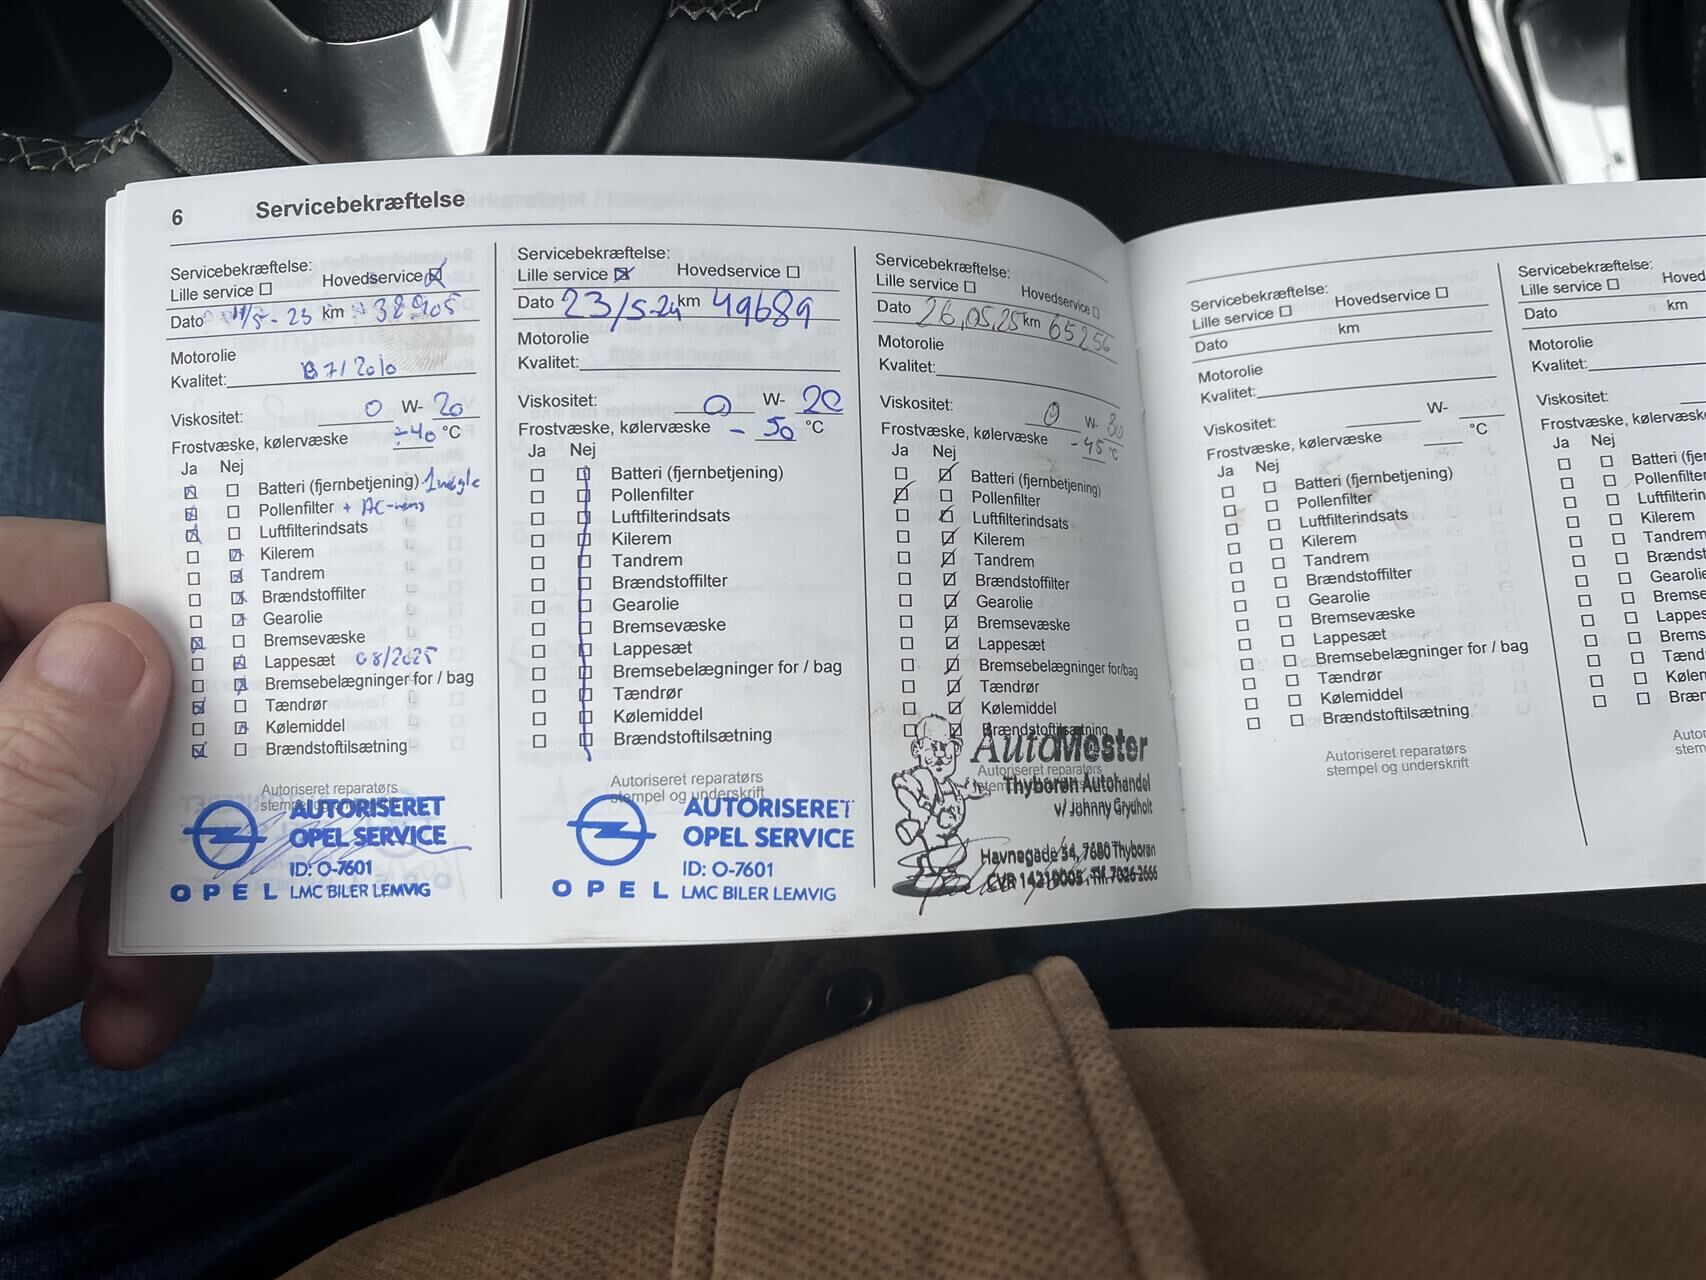 6 Servicebekræftelse
Servicebekræftelse:
Lille service Hovedservice
Dato 11/5-23 km 38.905
Motorolie
Kvalitet: B71/2010
Viskositet: 0 W- 20
Frostvæske, kølervæske ÷40 °C
Ja Nej
Batteri (fjernbetjening) 1 nøgle
Pollenfilter + AC-rens
Luftfilterindsats
Kilerem
Tandrem
Brændstoffilter
Gearolie
Bremsevæske
Lappesæt 08/2025
Bremsebelægninger for / bag
Tændrør
Kølemiddel
Brændstoftilsætning
Autoriseret reparatørs
stempel og
AUTORISERET
OPEL SERVICE
ID: O-7601
OPEL LMC BILER LEMVIG
Servicebekræftelse:
Lille service Hovedservice
Dato 23/5-24 km 49689
Motorolie
Kvalitet:
Viskositet: 0 W- 20
Frostvæske, kølervæske - 50 °C
Ja Nej
Batteri (fjernbetjening)
Pollenfilter
Luftfilterindsats
Kilerem
Tandrem
Brændstoffilter
Gearolie
Bremsevæske
Lappesæt
Bremsebelægninger for / bag
Tændrør
Kølemiddel
Brændstoftilsætning
Autoriseret reparatørs
stempel og underskrift
AUTORISERET
OPEL SERVICE
ID: O-7601
OPEL LMC BILER LEMVIG
Servicebekræftelse:
Lille service Hovedservice
Dato 26.05.25 km 65256
Motorolie
Kvalitet:
Viskositet: 0 W- 30
Frostvæske, kølervæske -45 °C
Ja Nej
Batteri (fjernbetjening)
Pollenfilter
Luftfilterindsats
Kilerem
Tandrem
Brændstoffilter
Gearolie
Bremsevæske
Lappesæt
Bremsebelægninger for/bag
Tændrør
Kølemiddel
Brændstoftilsætning
AutoMester
Autoriseret reparatørs
Thyborøn Autohandel
v/ Johnny Grydholt
Havnegade 54, 7680 Thyborøn
Servicebekræftelse:
Lille service Hovedservice
Dato km
Motorolie
Kvalitet:
Viskositet: W-
Frostvæske, kølervæske °C
Ja Nej
Batteri (fjernbetjening)
Pollenfilter
Luftfilterindsats
Kilerem
Tandrem
Brændstoffilter
Gearolie
Bremsevæske
Lappesæt
Bremsebelægninger for / bag
Tændrør
Kølemiddel
Brændstoftilsætning
Autoriseret reparatørs
stempel og underskrift
Servicebekræftelse:
Lille service Hoved
Dato km
Motorolie
Kvalitet:
Viskositet:
Frostvæske, kølervæske
Ja Nej
Batteri (fjer
Pollenfilter
Luftfilterin
Kilerem
Tandrem
Brændst
Gearolie
Bremse
Lappes
Brems
Tænd
Køler
Bræn
Autor
stem